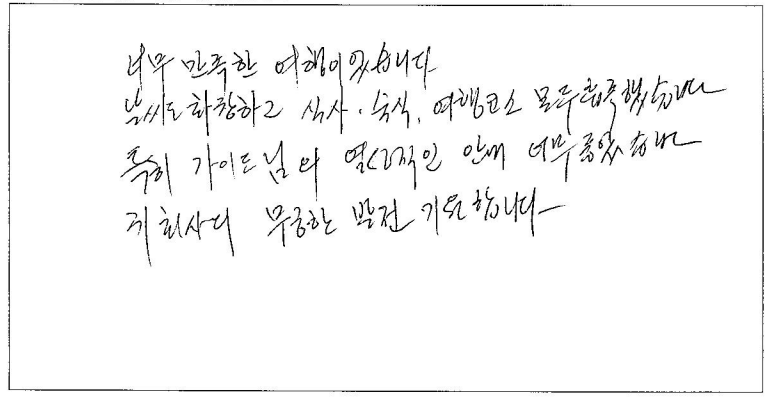 너무 만족한 여행이었습니다
날씨도 화창하고 식사·숙식, 여행코스 모두 흡족했습니다
특히 가이드님의 열정적인 안내 너무 좋았습니다
귀 회사의 무궁한 발전 기원합니다